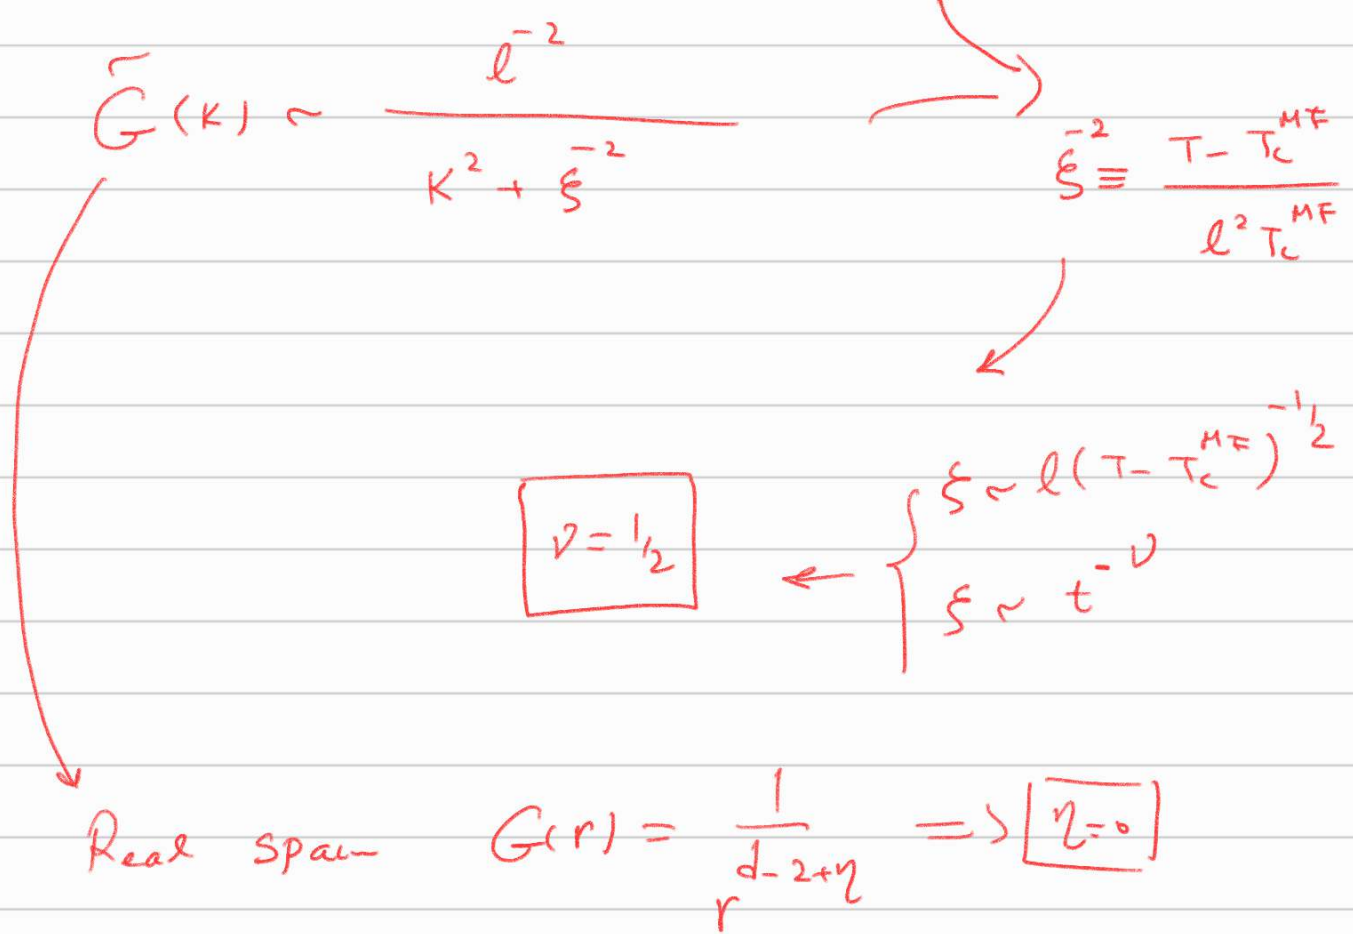 G̃(K) ~ l⁻² / (K² + ξ⁻²) → ξ⁻² ≡ (T - T_c^MF) / (l² T_c^MF)
ξ ~ l(T - T_c^MF)^(-1/2)
ν = 1/2 ← ξ ~ t^(-ν)
Real spac G(r) = 1 / r^(d-2+η) => η=0